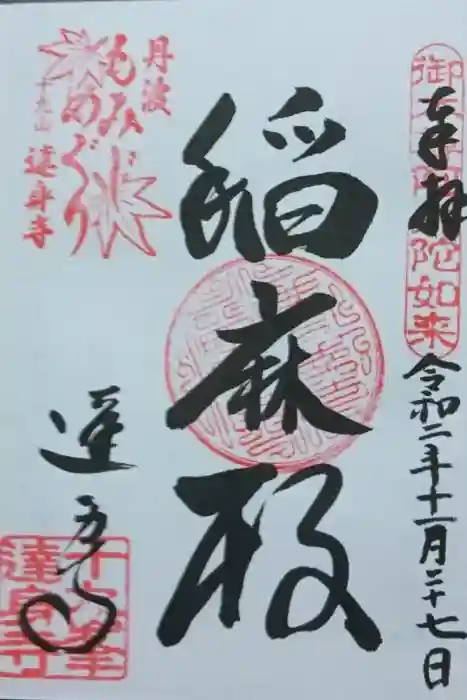 奉拝
御本尊阿弥陀如来
令和二年十一月二十七日
稲麻殿
丹波
もみじめぐり
十九山 達身寺
達身寺
十九山
達身寺